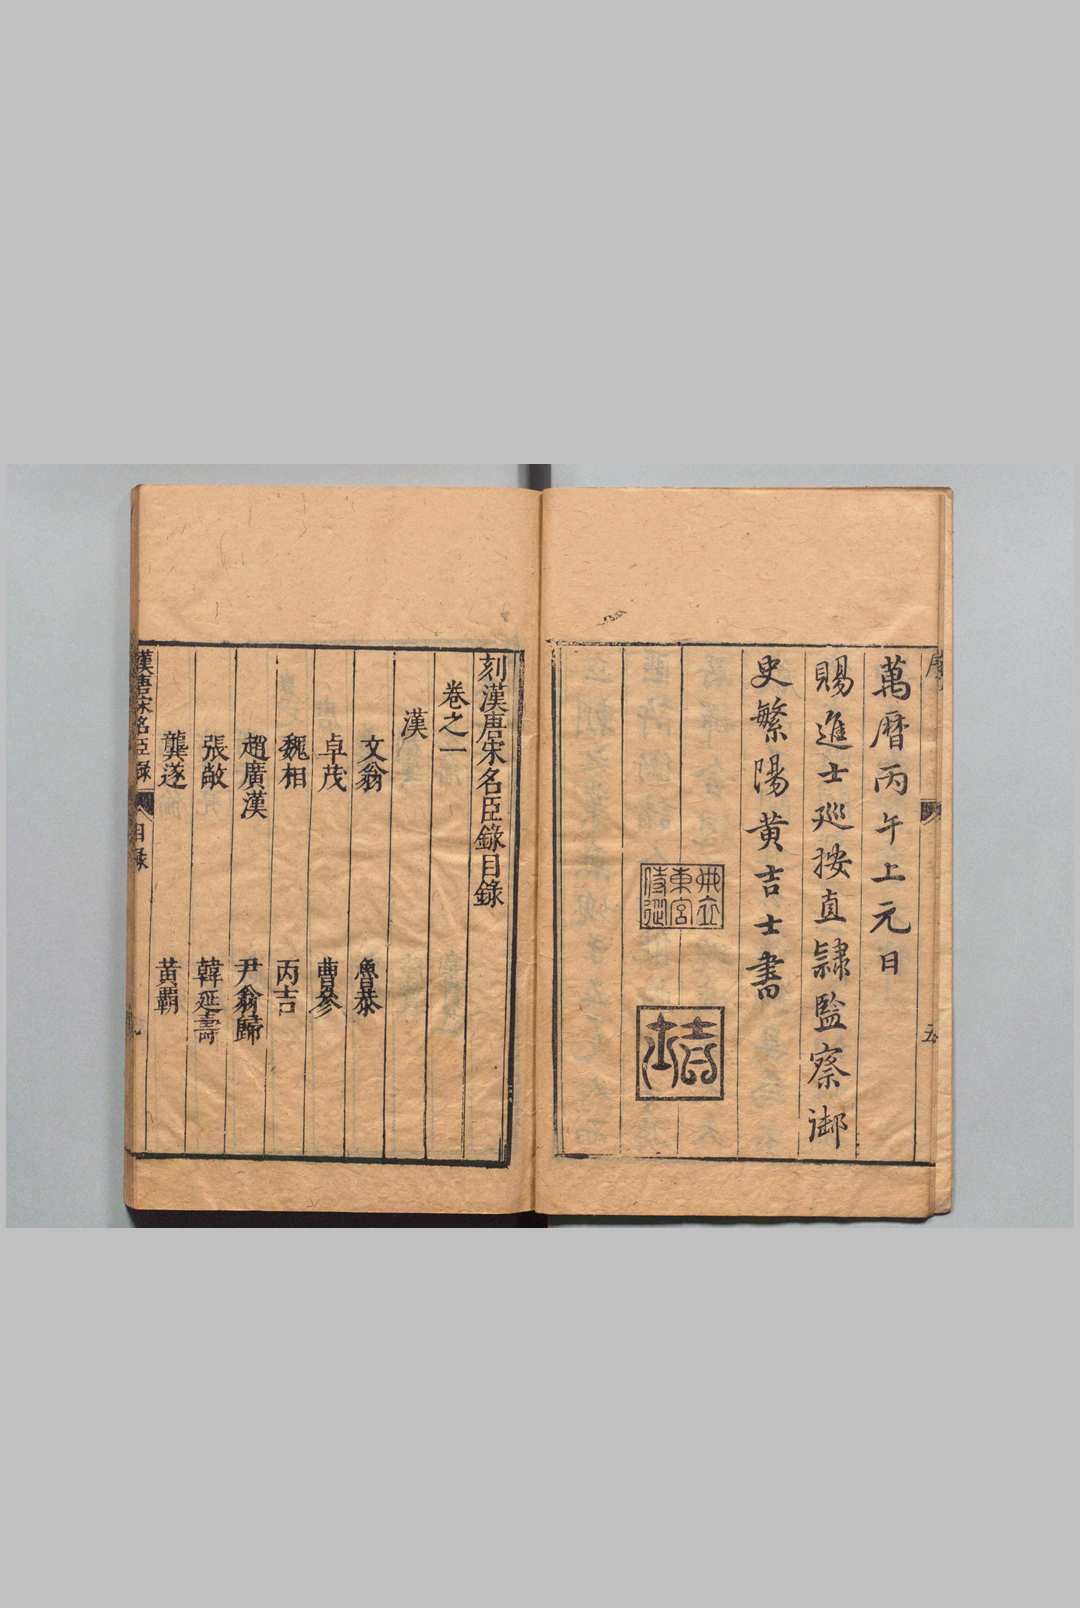 萬曆丙午上元日
賜進士巡按直隸監察御
史繁陽黄吉士書
刻漢唐宋名臣錄目錄
卷之一
漢
文翁 魯恭
卓茂 曹參
魏相 丙吉
趙廣漢 尹翁歸
張敞 韓延壽
龔遂 黄霸
漢唐宋名臣錄 目錄